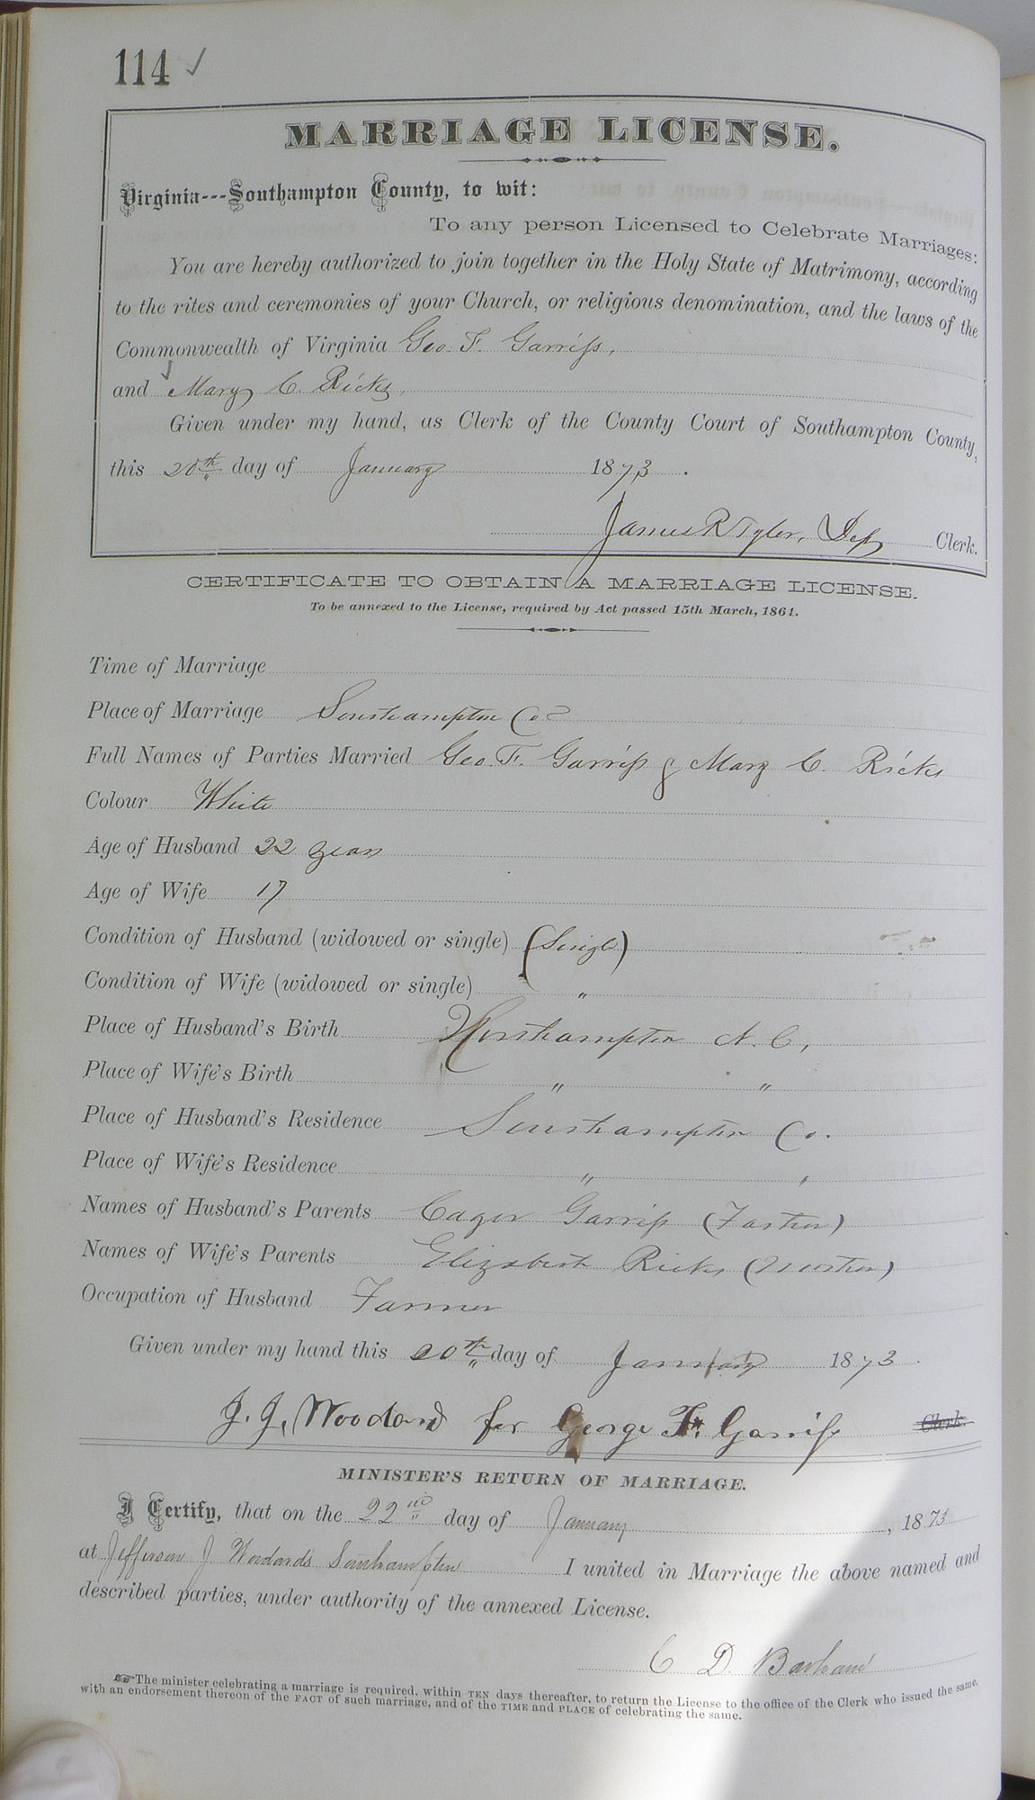 114 ✓
MARRIAGE LICENSE.
Virginia---Southampton County, to wit:
To any person Licensed to Celebrate Marriages:
You are hereby authorized to join together in the Holy State of Matrimony, according
to the rites and ceremonies of your Church, or religious denomination, and the laws of the
Commonwealth of Virginia Geo. F. Garriss,
and Mary C. Ricks,
Given under my hand, as Clerk of the County Court of Southampton County,
this 20th day of January 1873.
James R Tyler, Dep Clerk.
CERTIFICATE TO OBTAIN A MARRIAGE LICENSE.
To be annexed to the License, required by Act passed 15th March, 1861.
Time of Marriage
Place of Marriage Southampton Co
Full Names of Parties Married Geo. F. Garriss & Mary C. Ricks
Colour White
Age of Husband 22 years
Age of Wife 17
Condition of Husband (widowed or single) (Single)
Condition of Wife (widowed or single) "
Place of Husband's Birth Northampton N. C.,
Place of Wife's Birth " "
Place of Husband's Residence Southampton Co.
Place of Wife's Residence " "
Names of Husband's Parents Cager Garriss (Father)
Names of Wife's Parents Elizabeth Ricks (Mother)
Occupation of Husband Farmer
Given under my hand this 20th day of January 1873.
J. J. Woodard for George F. Garriss Clerk.
MINISTER'S RETURN OF MARRIAGE.
I Certify, that on the 22nd day of January, 1873
at Jefferson J Woodards Southampton I united in Marriage the above named and
described parties, under authority of the annexed License.
C D. Barham
☞ The minister celebrating a marriage is required, within TEN days thereafter, to return the License to the office of the Clerk who issued the same,
with an endorsement thereon of the FACT of such marriage, and of the TIME and PLACE of celebrating the same.